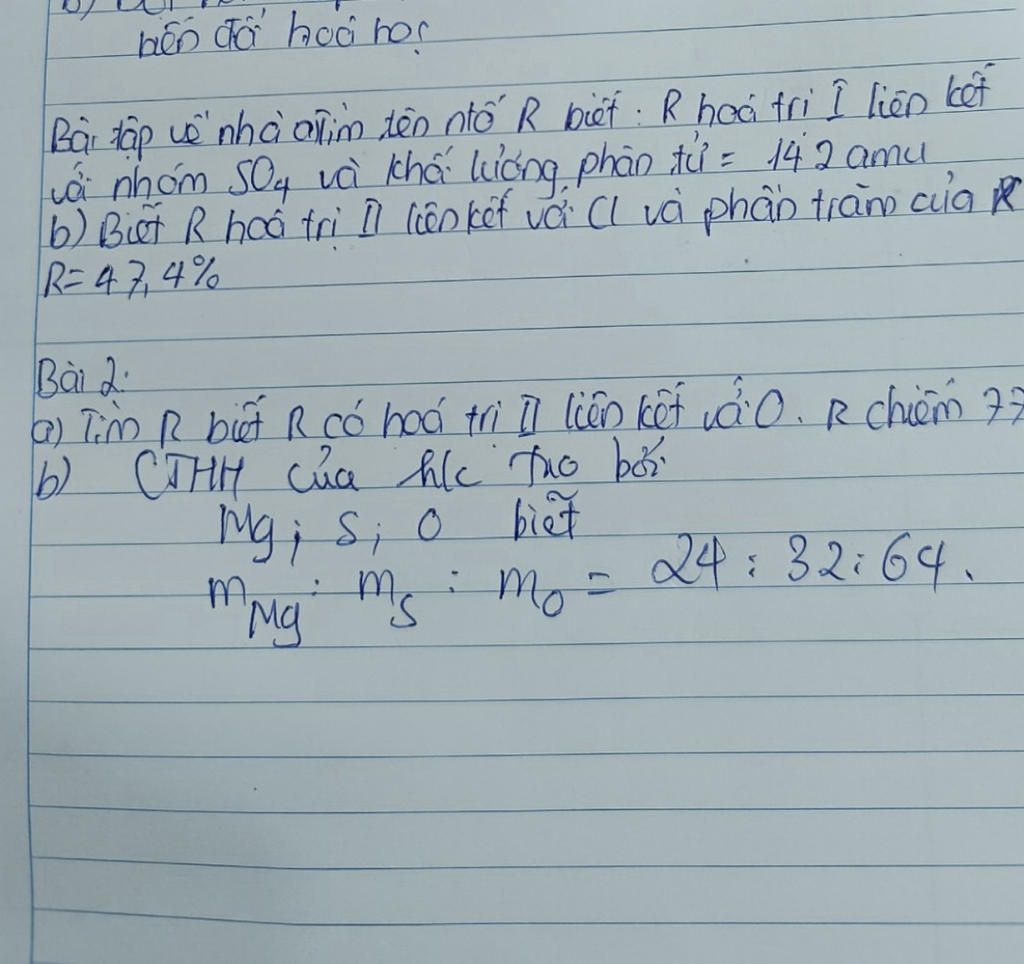 biến đổi hoá học
Bài tập về nhà a) Tìm tên ntố R biết : R hoá trị I liên kết
với nhóm SO₄ và khối lượng phân tử = 142 amu
b) Biết R hoá trị II liên kết với Cl và phần trăm của R
R = 47,4%
Bài 2:
a) Tìm R biết R có hoá trị II liên kết với O. R chiếm 77
b) CTHH của h/c tạo bởi
Mg ; S ; O biết
m_Mg : m_S : m_O = 24 : 32 : 64.